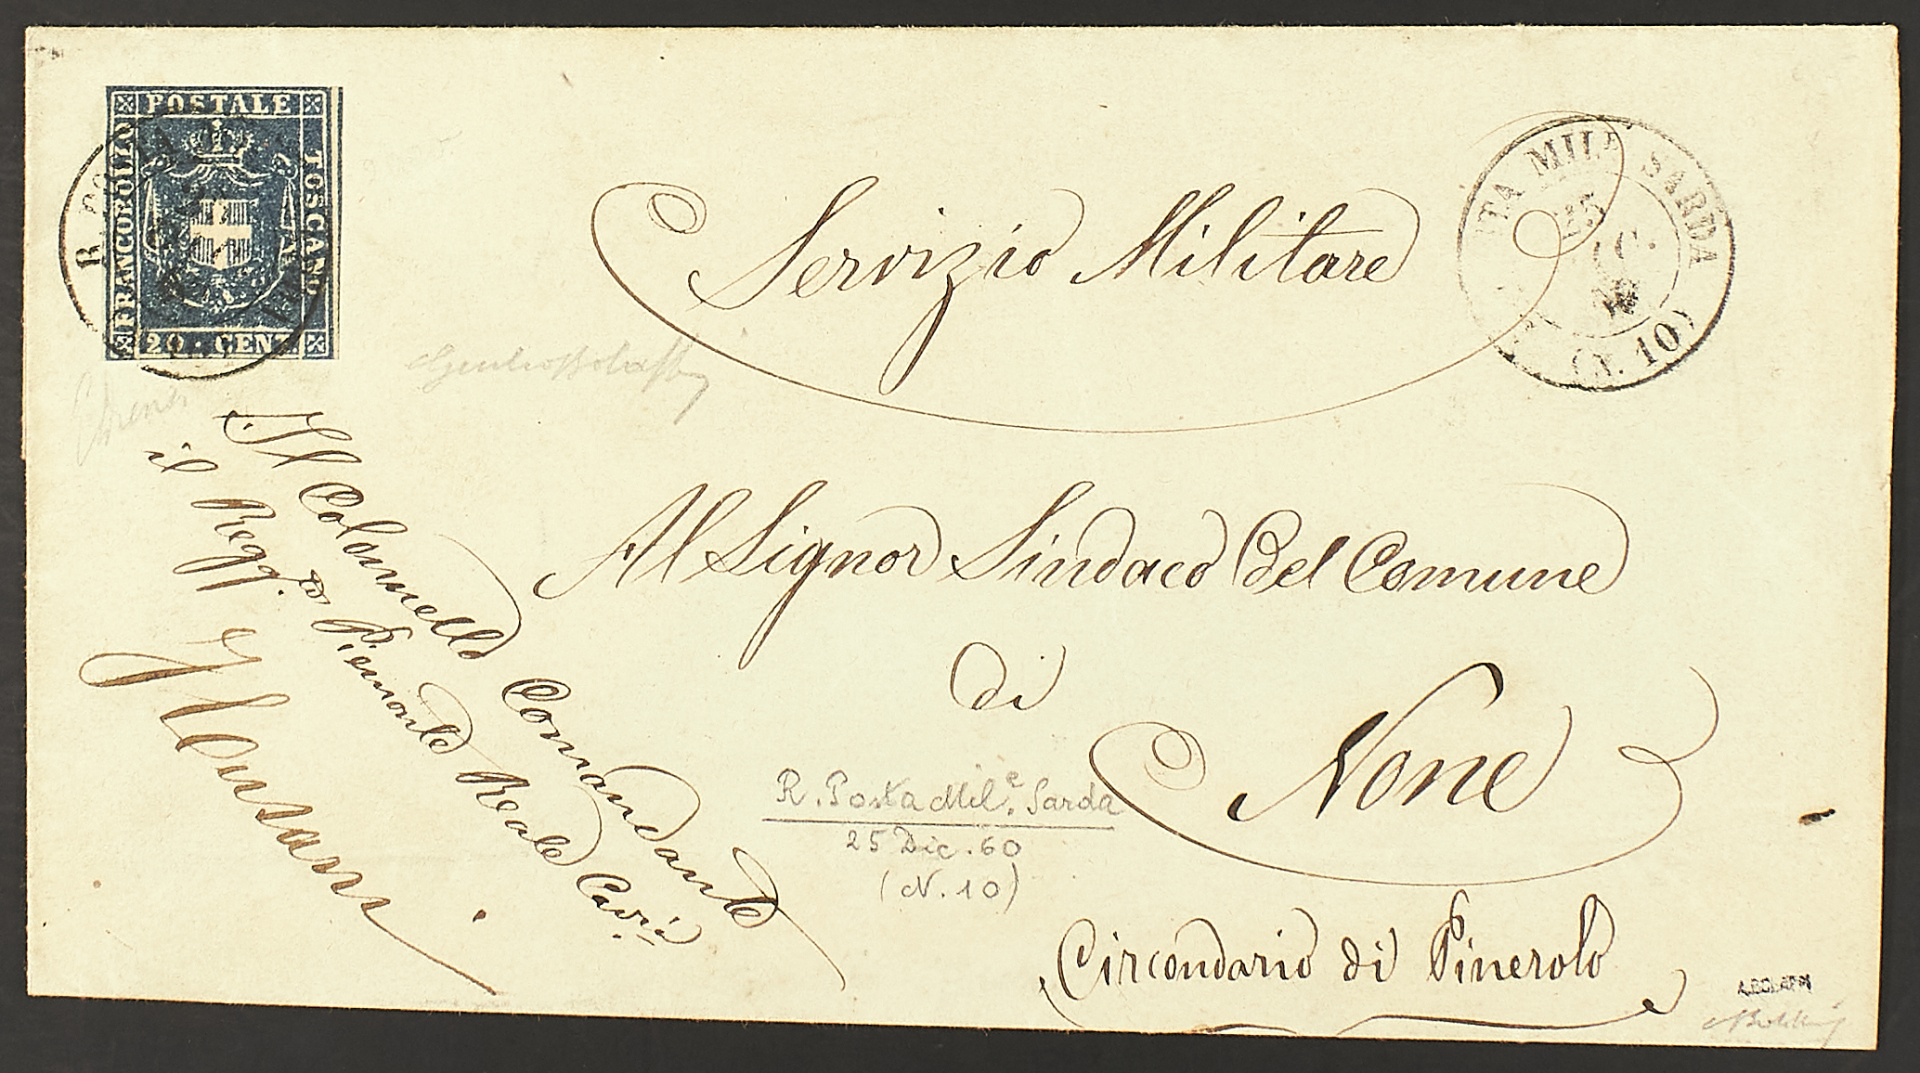 POSTALE
FRANCOBOLLO
TOSCANO
20 · CENT.
Servizio Militare
TA MIL.E SARDA
25
(N. 10)
Al Signor Sindaco Del Comune
di
None
Circondario di Pinerolo
Il Colonnello Comandante
il Regg.to Piemonte Reale Cav.ia
R. Posta Mil.e Sarda
25 Dic. 60
(N. 10)
A.BOLAFFI